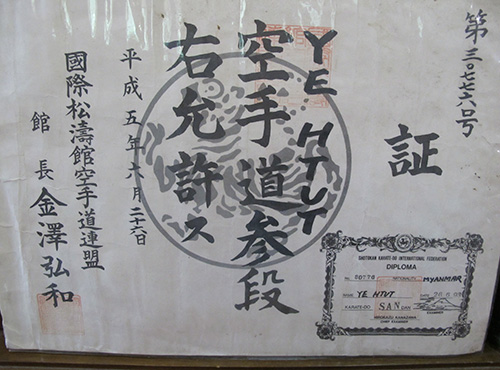 第三〇七七六号
証
YE HTUT
空手道参段
右允許ス
平成五年六月二十六日
國際松濤館空手道連盟
館長 金澤弘和
SHOTOKAN KARATE-DO INTERNATIONAL FEDERATION
DIPLOMA
No. 30776 NATIONALITY MYANMAR
NAME YE HTUT DATE 26.6.93
KARATE-DO SAN DAN EXAMINER
HIROKAZU KANAZAWA
CHIEF EXAMINER